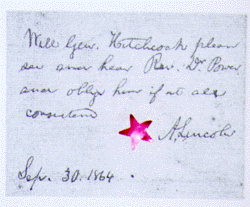 Will Gen. Hitchcock please
see and hear Rev. Dr Power
and oblige him if at all
consistent
A. Lincoln
Sep. 30. 1864.